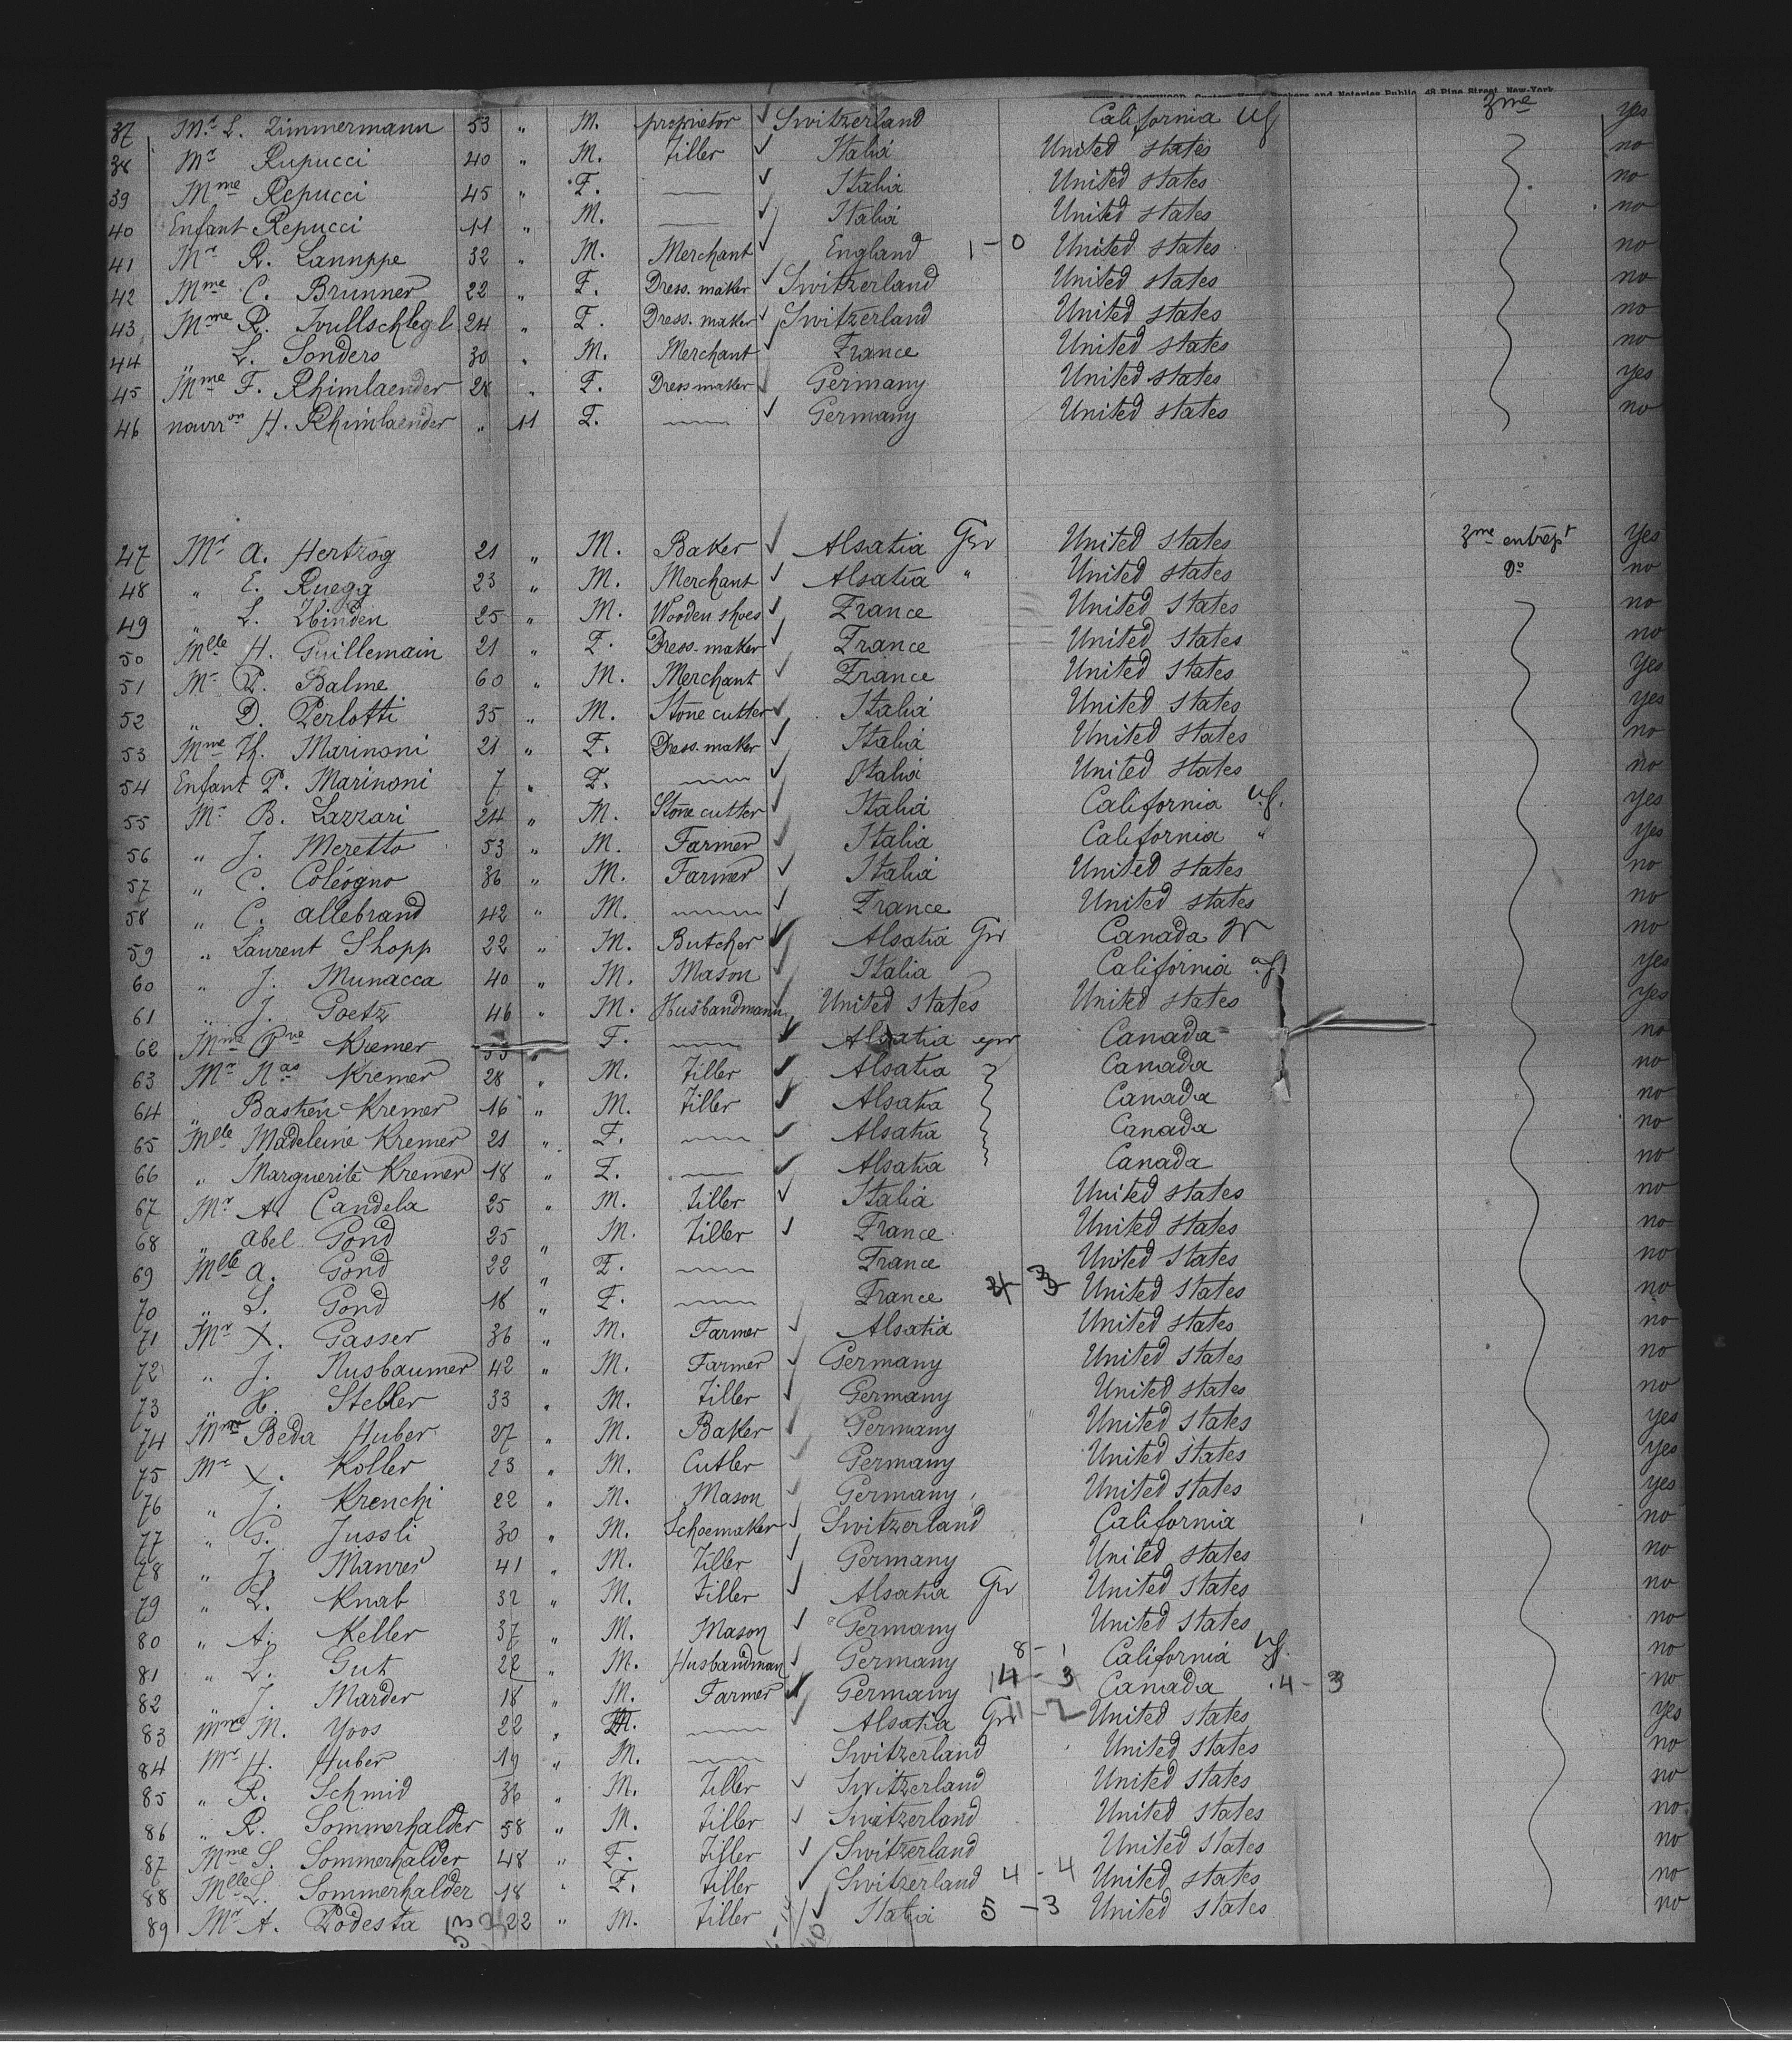 Custom House Brokers and Notaries Public, 48 Pine Street, New-York
37 Mr L. Zimmermann 53 " M. proprietor ✓ Switzerland California US 3me yes
38 Mr Rupucci 40 " M. Tiller ✓ Italia United States no
39 Mme Repucci 45 " F. — ✓ Italia United States no
40 Enfant Repucci 11 " M. — ✓ Italia United States no
41 Mr R. Lannppe 32 " M. Merchant ✓ England 1-0 United States no
42 Mme C. Brunner 22 " F. Dress. maker ✓ Switzerland United States no
43 Mme R. Wullschlegel 24 " F. Dress. maker ✓ Switzerland United States no
44 " L. Sonders 30 " M. Merchant ✓ France United States no
45 Mme F. Rhimlaender 28 " F. Dress maker ✓ Germany United States yes
46 nourron H. Rhimlaender " 11 F. — ✓ Germany United States no
47 Mr A. Hertzog 21 " M. Baker ✓ Alsatia Gr United States 3me entrept Yes
48 " E. Ruegg 23 " M. Merchant ✓ Alsatia " United States Do no
49 " L. Zbinden 25 " M. Wooden shoes ✓ France United States no
50 Mlle H. Guillemain 21 " F. Dress-maker ✓ France United States no
51 Mr P. Balme 60 " M. Merchant ✓ France United States Yes
52 " D. Perlotti 35 " M. Stone cutter ✓ Italia United States yes
53 Mme Th. Marinoni 21 " F. Dress-maker ✓ Italia United States no
54 Enfant P. Marinoni 7 " F. — ✓ Italia United States no
55 Mr B. Lazzari 24 " M. Stone cutter ✓ Italia California US. yes
56 " J. Meretto 53 " M. Farmer ✓ Italia California " yes
57 " C. Coléogno 36 " M. Farmer ✓ Italia United States no
58 " C. Allebrand 42 " M. — ✓ France United States no
59 " Laurent Shopp 22 " M. Butcher ✓ Alsatia Gr Canada no
60 " J. Munacca 40 " M. Mason ✓ Italia California yes
61 " J. Goetz 46 " M. Husbandmann United States United States yes
62 Mme Vve Kremer 55 " F. — ✓ Alsatia gr Canada no
63 Mr Nas Kremer 28 " M. Tiller ✓ Alsatia Canada no
64 " Bastien Kremer 16 " M. Tiller ✓ Alsatia Canada no
65 Mlle Madeleine Kremer 21 " F. — ✓ Alsatia Canada no
66 " Marguerite Kremer 18 " F. — ✓ Alsatia Canada no
67 Mr A. Candela 25 " M. Tiller ✓ Italia United States no
68 " Abel Gond 25 " M. Tiller ✓ France United States no
69 Mlle A. Gond 22 " F. — France United States no
70 " L. Gond 18 " F. — France United States no
71 Mr X. Gasser 36 " M. Farmer ✓ Alsatia United States no
72 " J. Nusbaumer 42 " M. Farmer ✓ Germany United States no
73 " H. Steller 33 " M. Tiller ✓ Germany United States no
74 Beda Huber 27 " M. Baker ✓ Germany United States yes
75 Mr X. Koller 23 " M. Cutler ✓ Germany United States yes
76 " J. Krenchi 22 " M. Mason ✓ Germany United States yes
77 " G. Jussli 30 " M. Schoemaker ✓ Switzerland California no
78 " J. Maurer 41 " M. Tiller ✓ Germany United States no
79 " L. Knab 32 " M. Tiller ✓ Alsatia Gr United States no
80 " A. Keller 37 " M. Mason ✓ Germany United States no
81 " L. Gut 22 " M. Husbandman ✓ Germany 8-1 California US. no
82 " J. Marder 18 " M. Farmer ✓ Germany 14-3 Canada 4-3 no
83 Mme M. Yoos 22 " — ✓ Alsatia Gr 11-2 United States yes
84 Mr H. Huber 19 " M. — Switzerland United States no
85 " R. Schmid 36 " M. Tiller ✓ Switzerland United States no
86 " R. Sommerhalder 58 " M. Tiller ✓ Switzerland United States no
87 Mme S. Sommerhalder 48 " F. Tiller ✓ Switzerland United States no
88 Mlle L. Sommerhalder 18 " F. Tiller ✓ Switzerland 4-4 United States no
89 Mr A. Podesta 22 " M. Tiller ✓ Italia 5-3 United States no